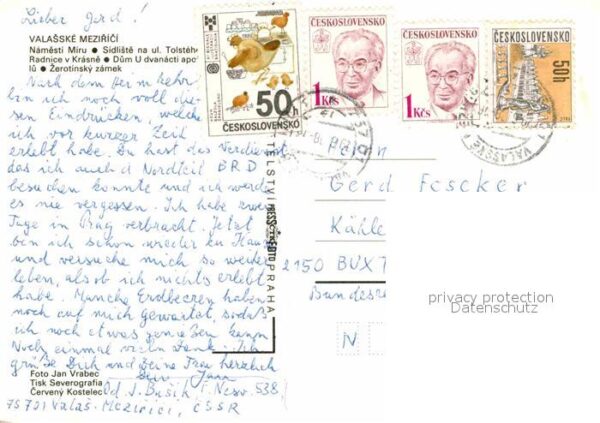 Lieber Gerd!
VALAŠSKÉ MEZIŘÍČÍ
Náměstí Míru ● Sídliště na ul. Tolstého
Radnice v Krásně ● Dům U dvanácti apo
lů ● Žerotínský zámek
Nach dem Heimkehr
bin ich noch voll die-
sen Eindrücken, welche
ich vor kurzer Zeit
erlebt habe. Du hast das Verdienst
das ich auch Nordteil BRD
besuchen konnte und ich werde
es nie vergessen. Ich habe zwei
Tage in Prag verbracht. Jetzt
bin ich schon wieder zu Hause
und versuche mich so weiter
leben, als ob ich nichts erlebt
habe. Manche Erdbeeren haben
noch auf mich gewartet, sodaß
ich noch etwas genießen kann
Noch einmal vielen Dank! Ich
grüße Dich und Deine Frau herzlich
Foto Jan Vrabec
Tisk Severografia
Červený Kostelec
Od J. Bušík, Nesv. 538,
75701 Valaš. Meziříčí, ČSSR
TELSTVÍ PRESSFOTO PRAHA
50h
ČESKOSLOVENSKO
ČESKOSLOVENSKO
1Kčs
ČESKOSLOVENSKO
1Kčs
ČESKOSLOVENSKO
50h
757 01
VALAŠSKÉ
Gerd
Kähle
2150 BUXT
Bundesre
N
privacy protection
Datenschutz